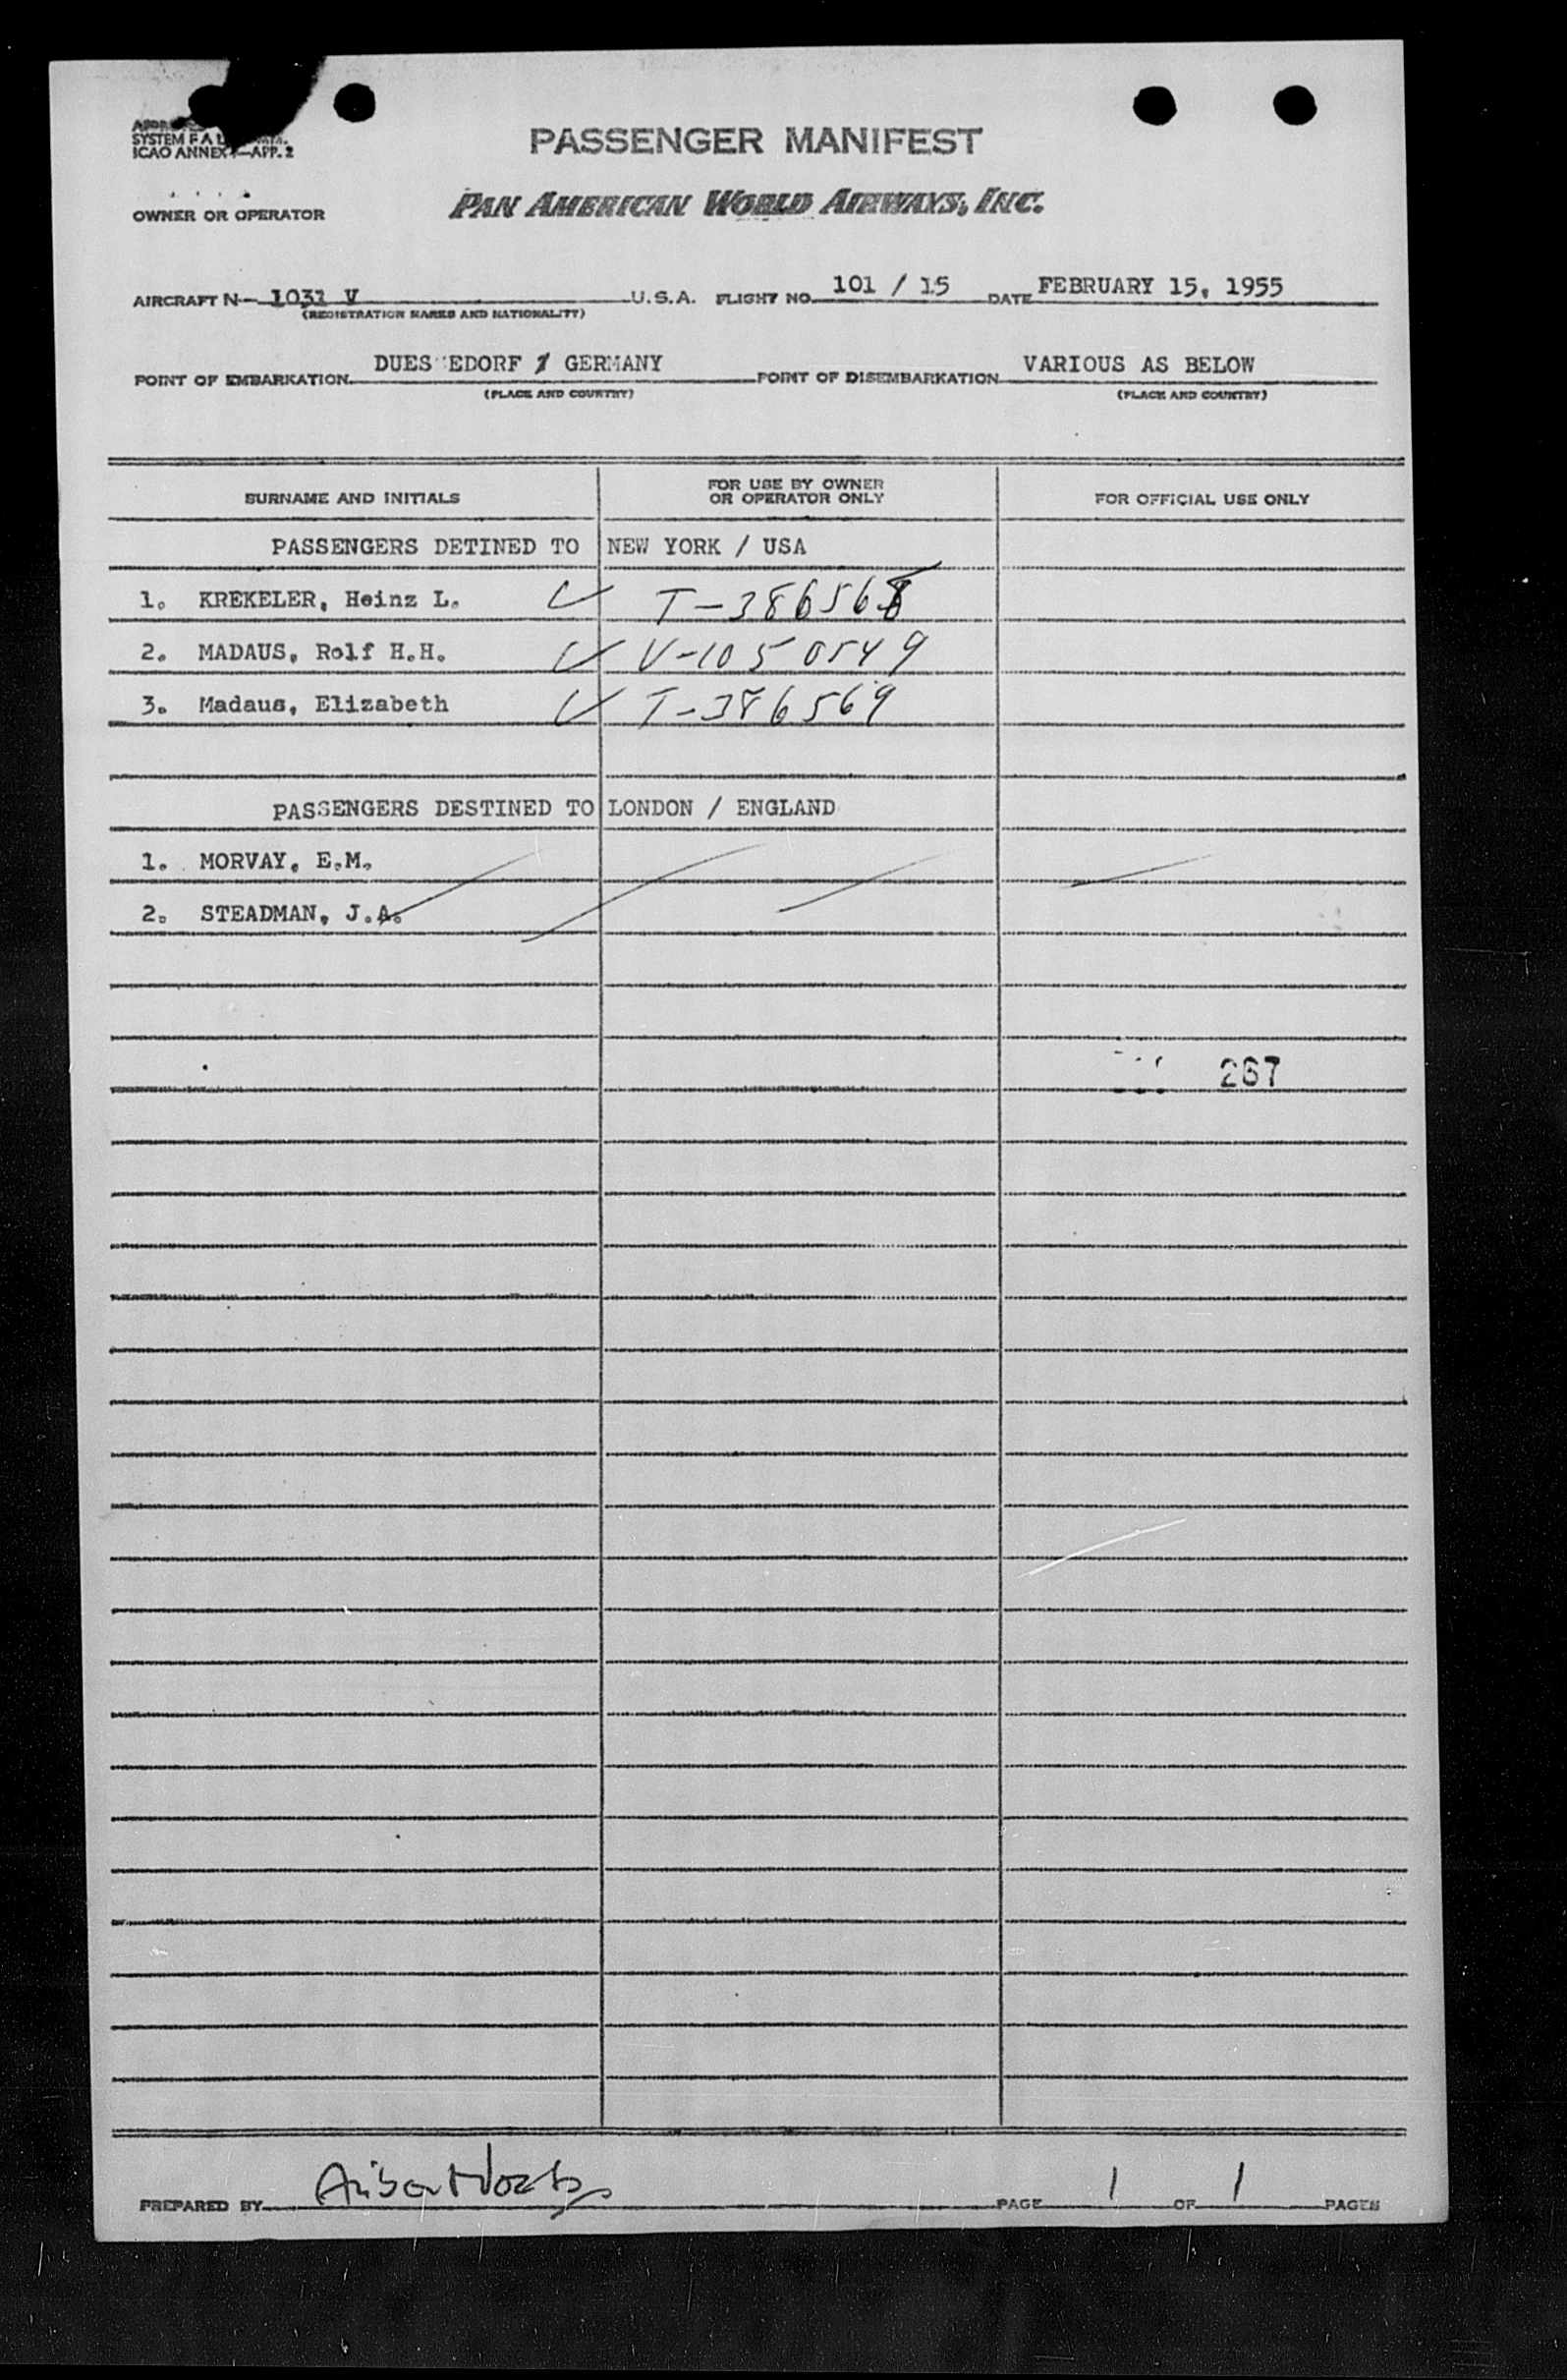 SYSTEM F A L
ICAO ANNEX 9—APP. 2
PASSENGER MANIFEST
OWNER OR OPERATOR PAN AMERICAN WORLD AIRWAYS, INC.
AIRCRAFT N- 1031 V U.S.A. FLIGHT NO. 101 / 15 DATE FEBRUARY 15, 1955
(REGISTRATION MARKS AND NATIONALITY)
POINT OF EMBARKATION DUES EDORF / GERMANY POINT OF DISEMBARKATION VARIOUS AS BELOW
(PLACE AND COUNTRY) (PLACE AND COUNTRY)
SURNAME AND INITIALS FOR USE BY OWNER OR OPERATOR ONLY FOR OFFICIAL USE ONLY
PASSENGERS DETINED TO NEW YORK / USA
1. KREKELER, Heinz L. T-386568
2. MADAUS, Rolf H.H. V-1050549
3. Madaus, Elizabeth T-386569
PASSENGERS DESTINED TO LONDON / ENGLAND
1. MORVAY, E.M.
2. STEADMAN, J.A.
267
PREPARED BY PAGE 1 OF 1 PAGES